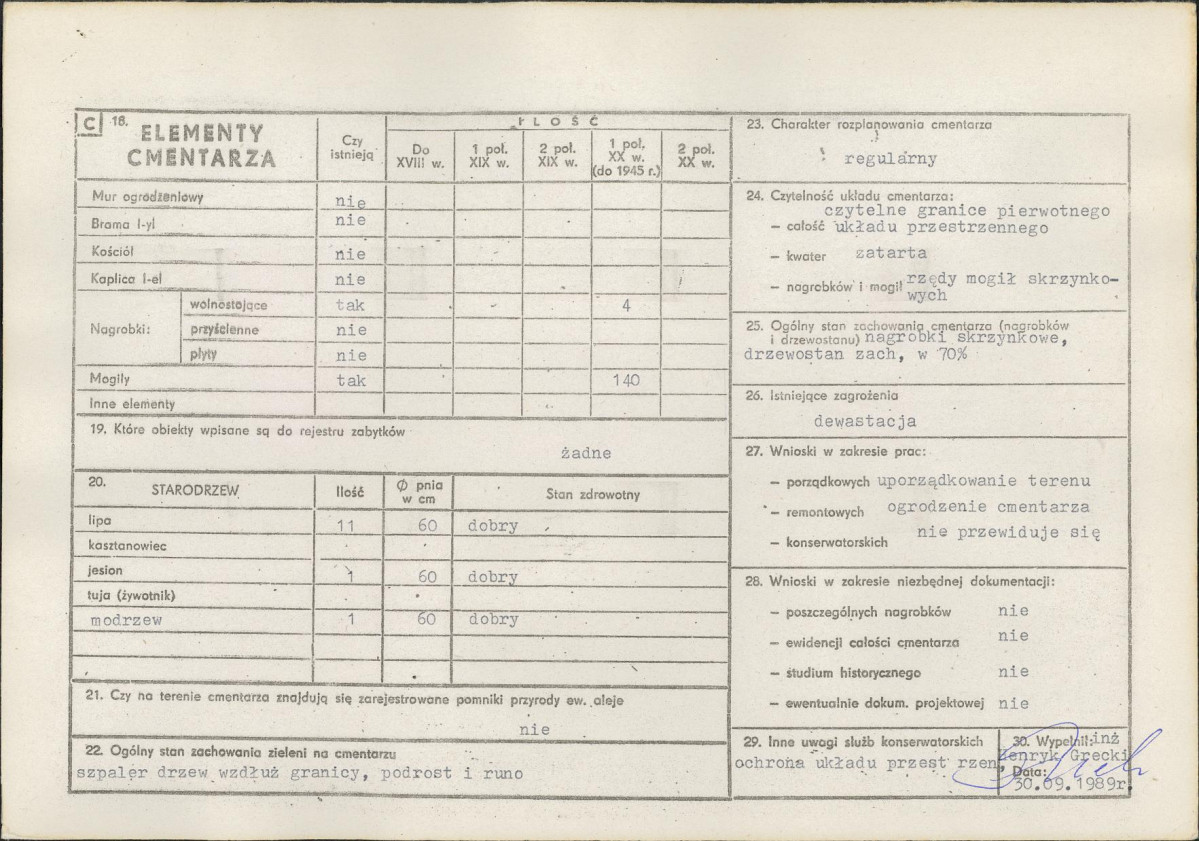 C 18. ELEMENTY CMENTARZA
Czy istnieją
IŁOŚĆ
Do XVIII w.
1 poł. XIX w.
2 poł. XIX w.
1 poł. XX w. (do 1945 r.)
2 poł. XX w.
Mur ogrodzeniowy nie
Brama I-yl nie
Kościół nie
Kaplica I-el nie
Nagrobki: wolnostojące tak 4
przyścienne nie
płyty nie
Mogiły tak 140
Inne elementy
19. Które obiekty wpisane są do rejestru zabytków
żadne
20. STARODRZEW Ilość Ø pnia w cm Stan zdrowotny
lipa 11 60 dobry
kasztanowiec
jesion 1 60 dobry
tuja (żywotnik)
modrzew 1 60 dobry
21. Czy na terenie cmentarza znajdują się zarejestrowane pomniki przyrody ew. aleje
nie
22. Ogólny stan zachowania zieleni na cmentarzu
szpaler drzew wzdłuż granicy, podrost i runo
23. Charakter rozplanowania cmentarza
regularny
24. Czytelność układu cmentarza:
czytelne granice pierwotnego
– całość układu przestrzennego
– kwater zatarta
– nagrobków i mogił rzędy mogił skrzynko-
wych
25. Ogólny stan zachowania cmentarza (nagrobków
i drzewostanu) nagrobki skrzynkowe,
drzewostan zach, w 70%
26. Istniejące zagrożenia
dewastacja
27. Wnioski w zakresie prac:
– porządkowych uporządkowanie terenu
– remontowych ogrodzenie cmentarza
– konserwatorskich nie przewiduje się
28. Wnioski w zakresie niezbędnej dokumentacji:
– poszczególnych nagrobków nie
– ewidencji całości cmentarza nie
– studium historycznego nie
– ewentualnie dokum. projektowej nie
29. Inne uwagi służb konserwatorskich
ochrona układu przest rzen,
30. Wypełnił: inż
Henryk Grecki
Data:
30.09.1989r.